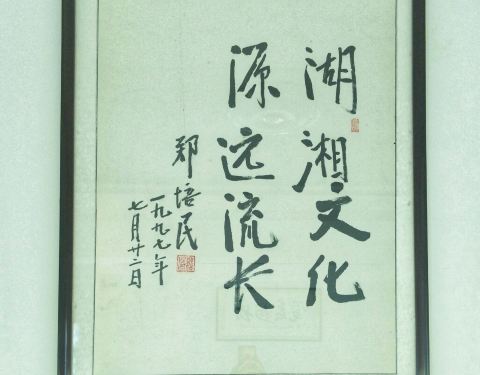 湖湘文化
源远流长
郑培民
一九九七年
七月廿二日